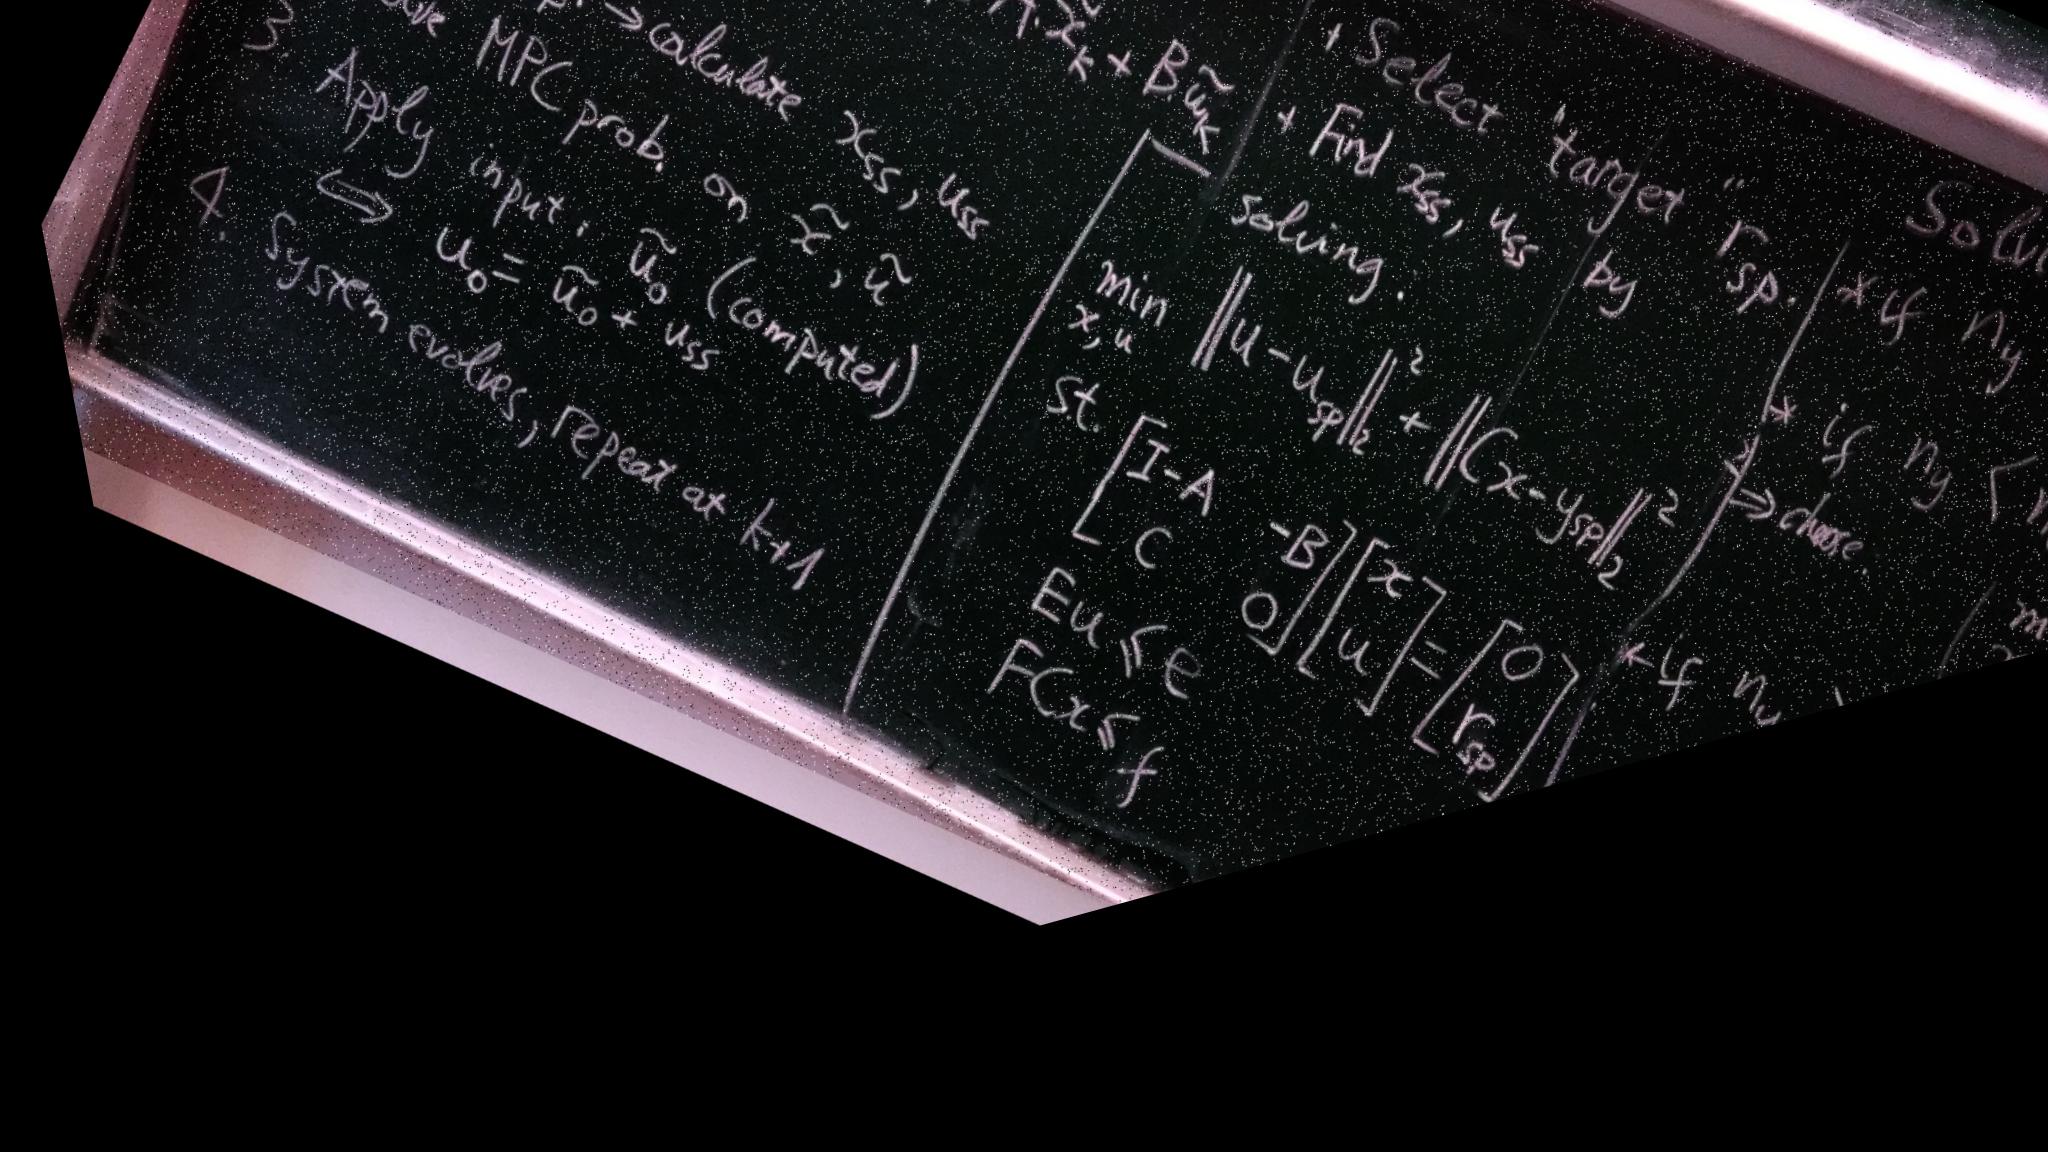 → calculate x_ss, u_ss
MPC prob. on x̃, ũ
3. Apply input: ũ_0 (computed)
⇔ u_0 = ũ_0 + u_ss
4. System evolves, repeat at k+1
x̃_k + Bũ_k
+ Select "target" r_sp.
+ Find x_ss, u_ss by
solving:
min ‖u - u_sp‖_2^2 + ‖Cx - y_sp‖_2^2
x, u
st. [I-A -B] [x] = [0]
[C 0] [u] [r_sp]
Eu ≤ e
FCx ≤ f
* if n_y
* if n_y <
⇒ choose.
* if n_u